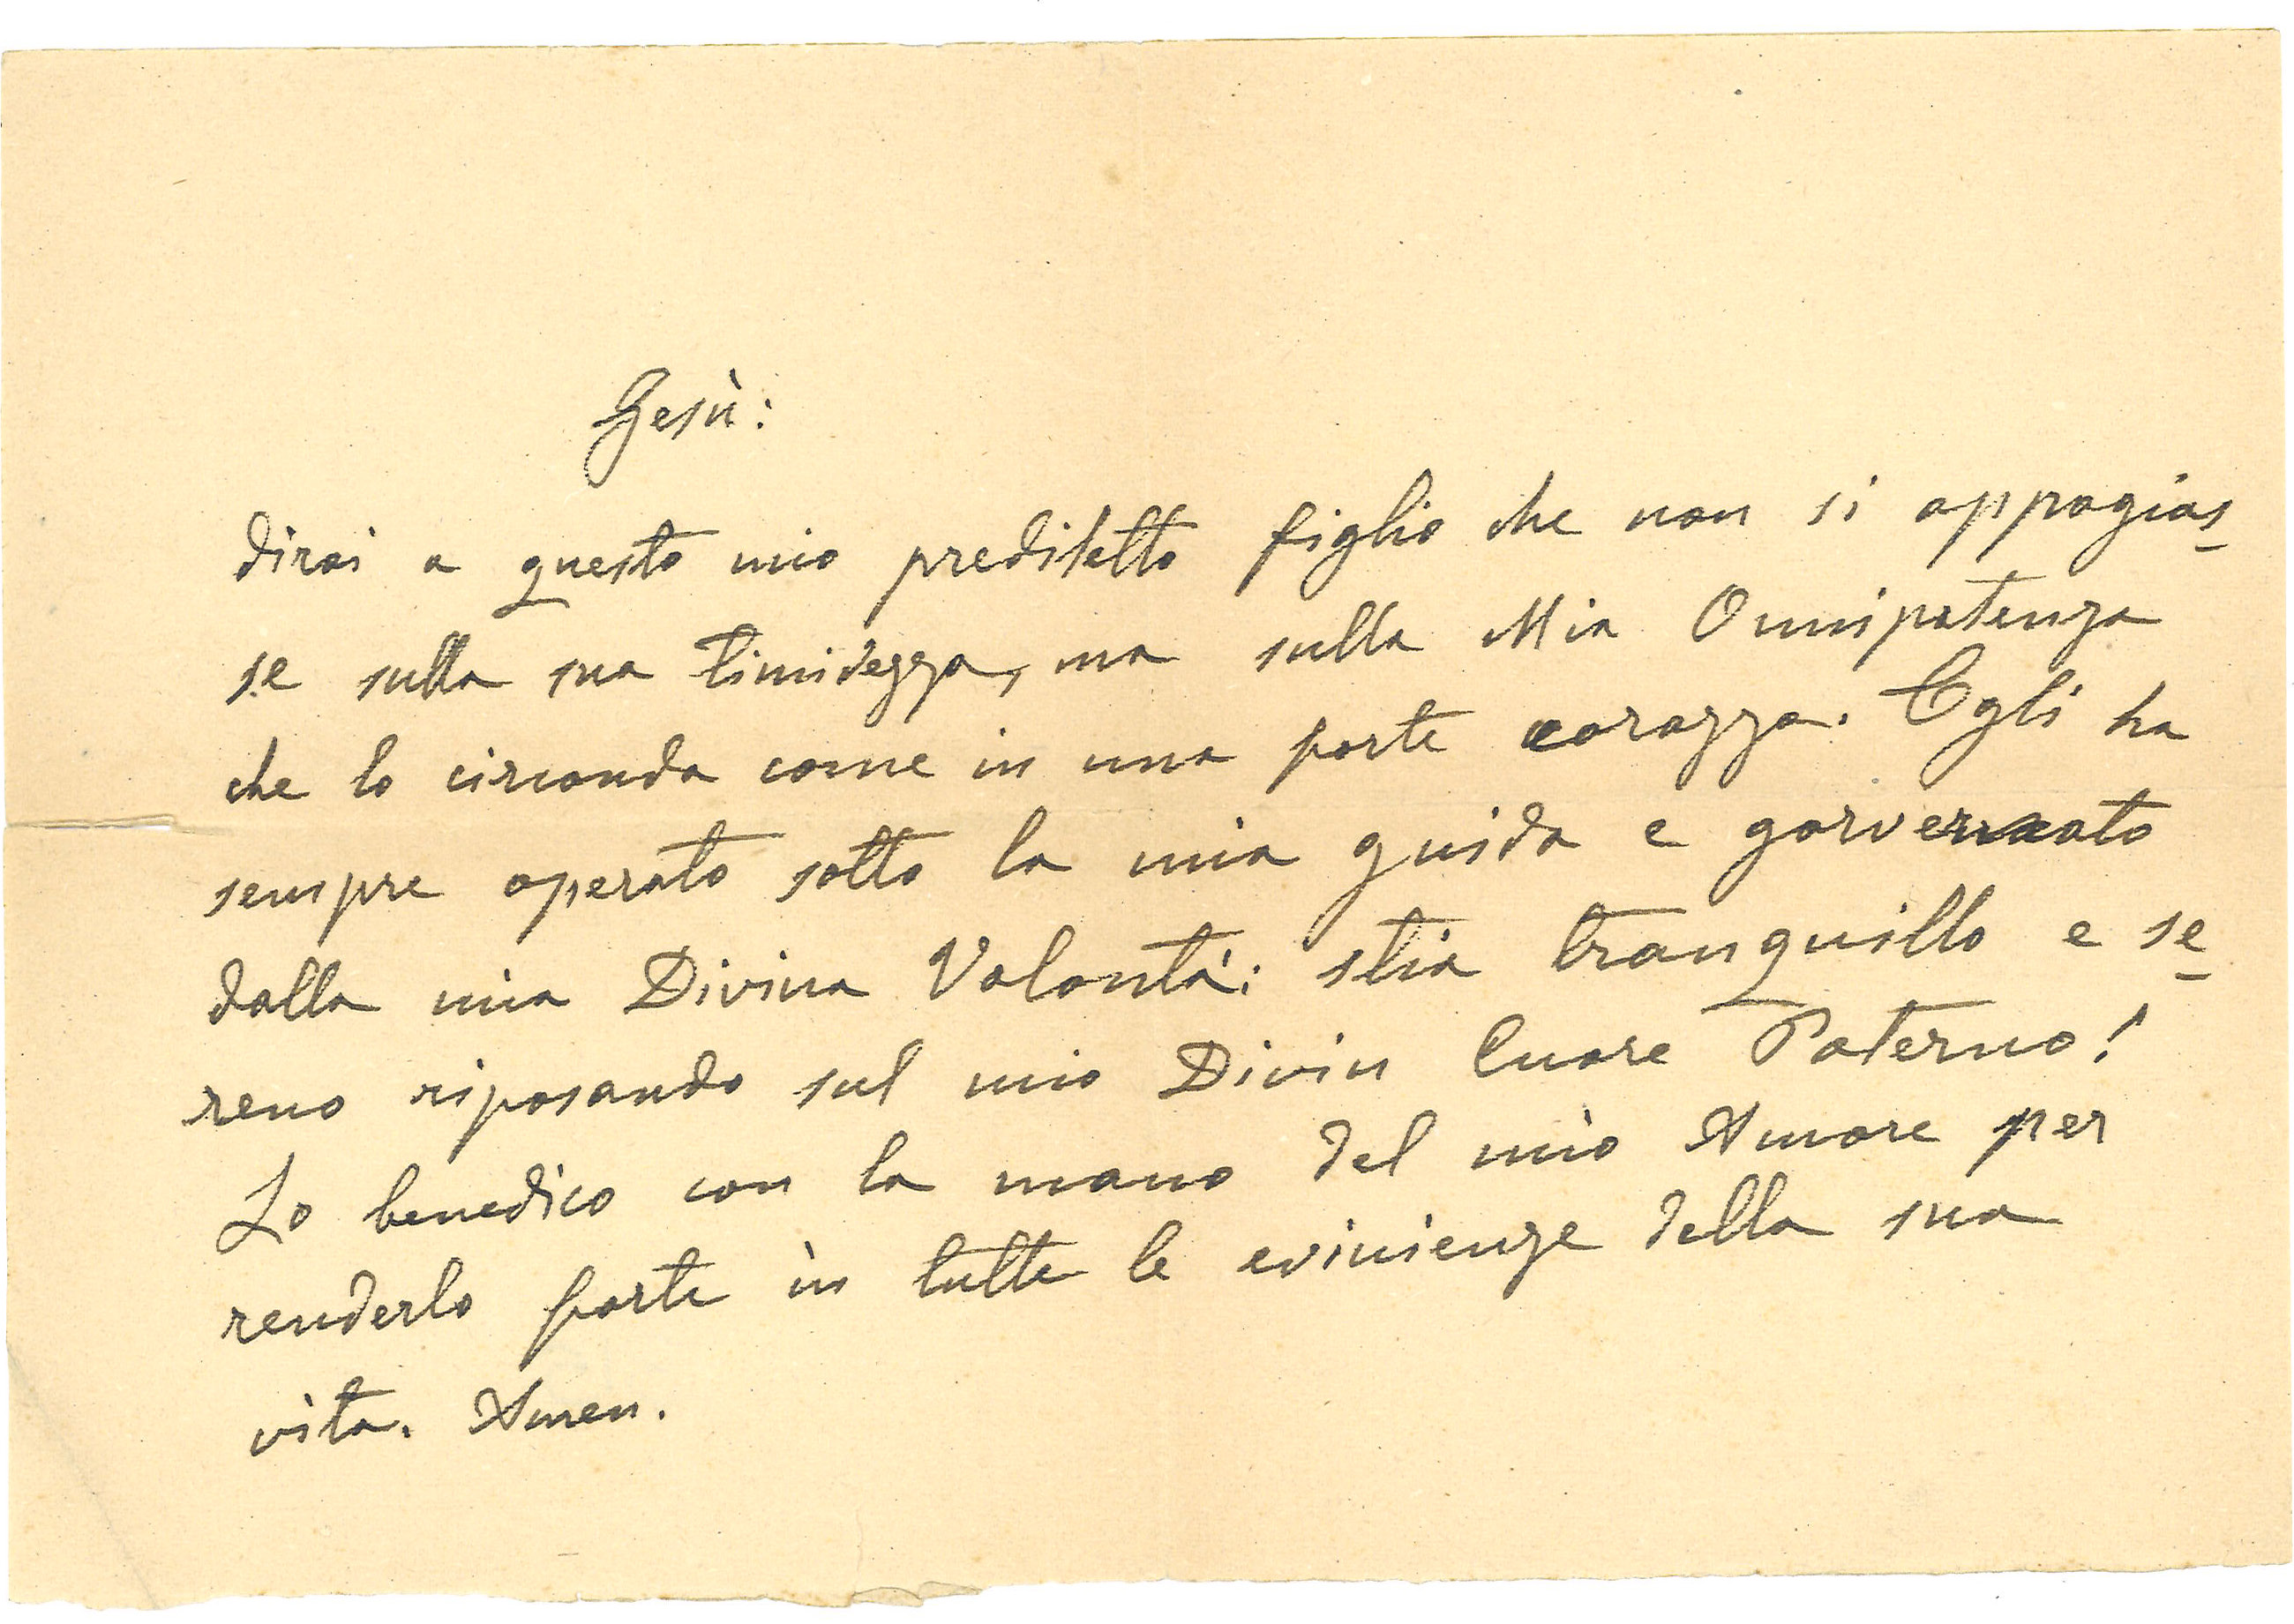 Gesù:
dirai a questo mio prediletto figlio che non si appogias
se sulla sua timidezza, ma sulla Mia Onnipotenza
che lo circonda come in una forte corazza. Egli ha
sempre operato sotto la mia guida e governato
dalla mia Divina Volontà: stia tranquillo e se
reno riposando sul mio Divin Cuore Paterno!
Lo benedico con la mano del mio Amore per
renderlo forte in tutte le evinienze della sua
vita. Amen.